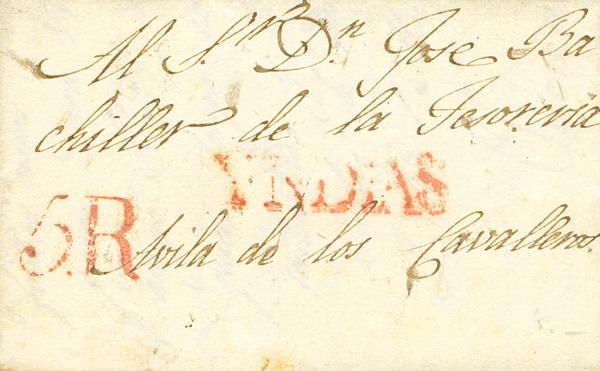 Al S.r D.n Jose Ba
chiller de la Tesoreria
YNDIAS
5R Avila de los Cavalleros.